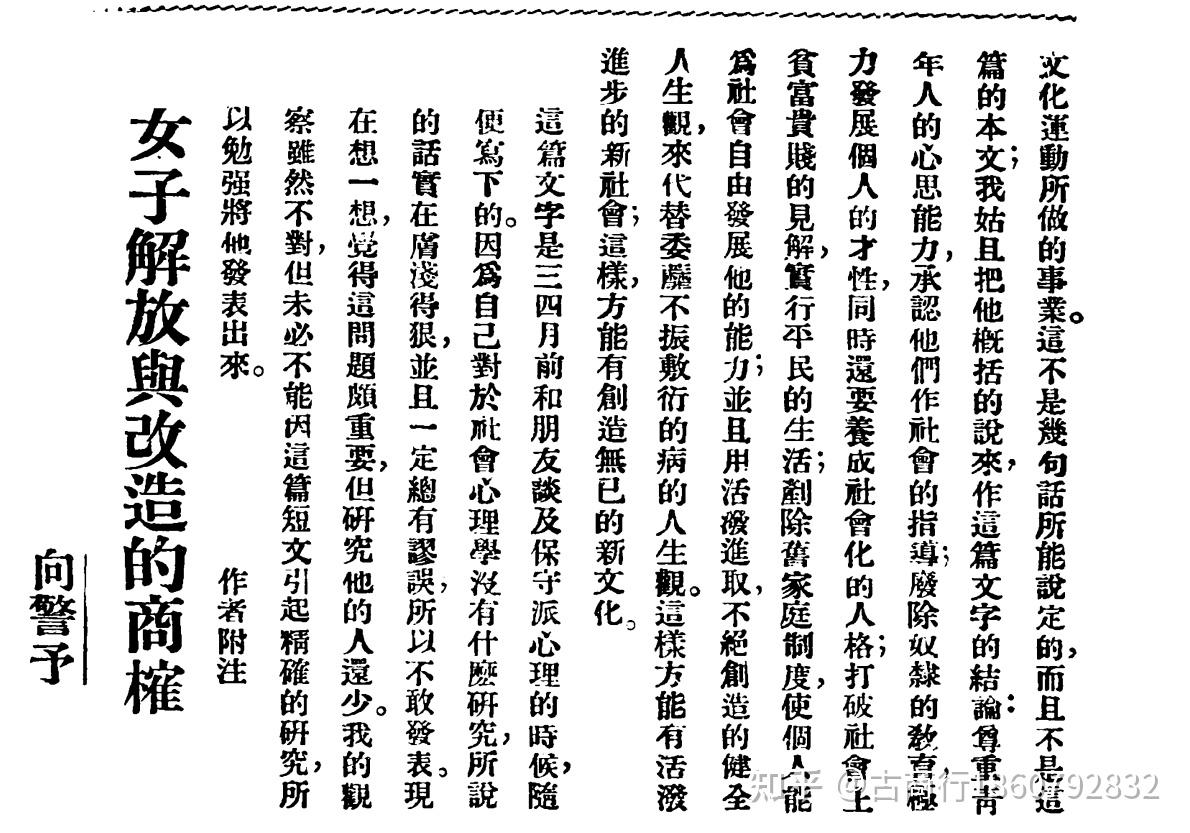 文化運動所做的事業。這不是幾句話所能說定的,而且不是這
篇的本文;我姑且把他槪括的說來,作這篇文字的結論:尊重靑
年人的心思能力,承認他們作社會的指導;廢除奴隸的敎育,極
力發展個人的才性,同時還要養成社會化的人格;打破社會上
貧富貴賤的見解,實行平民的生活;剷除舊家庭制度,使個人能
爲社會自由發展他的能力;並且用活潑進取,不絕創造的健全
人生觀,來代替委靡不振敷衍的病的人生觀。這樣方能有活潑
進步的新社會;這樣,方能有創造無已的新文化。
這篇文字是三四月前和朋友談及保守派心理的時候,隨
便寫下的。因爲自己對於社會心理學沒有什麽硏究,所說
的話實在膚淺得狠,並且一定總有謬誤,所以不敢發表。現
在想一想,覺得這問題頗重要,但硏究他的人還少。我的觀
察雖然不對,但未必不能因這篇短文引起精確的硏究,所
以勉强將他發表出來。 作者附注
女子解放與改造的商榷
向警予
知乎 @古商行1860792832